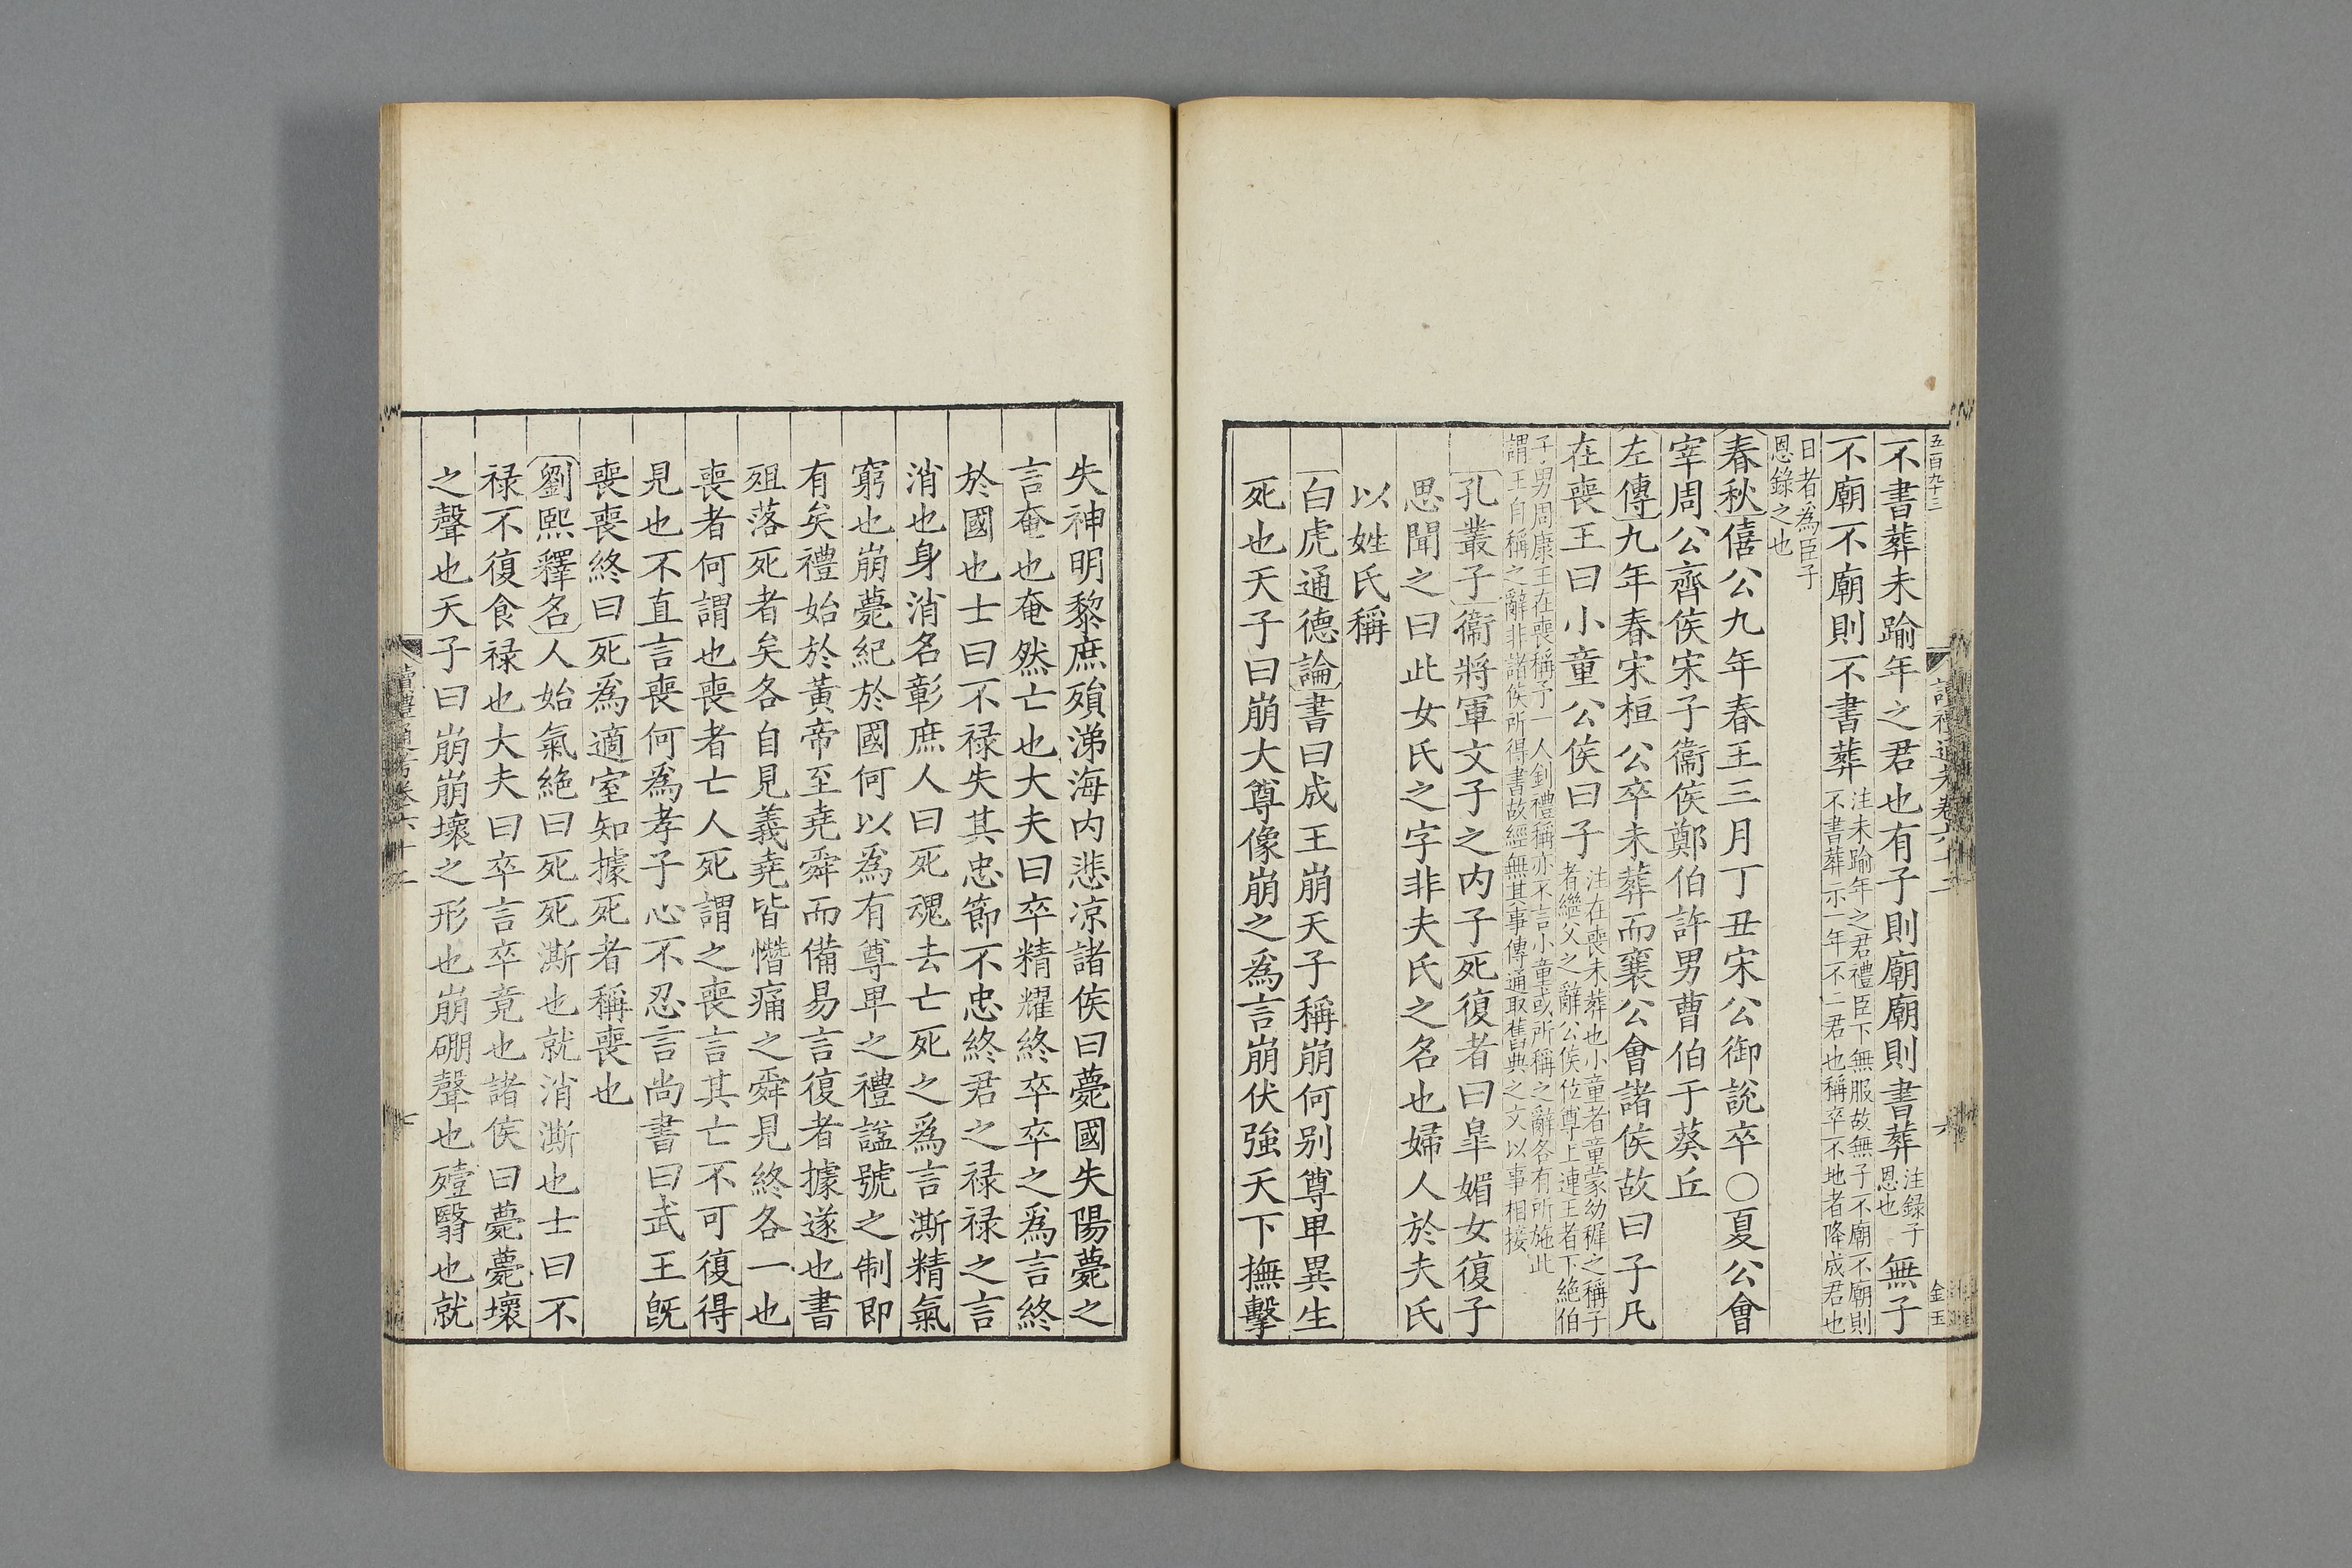 五百九十三
不書葬未踰年之君也有子則廟廟則書葬注錄子恩也無子
不廟不廟則不書葬注未踰年之君禮臣下無服故無子不廟不廟則不書葬示一年不二君也稱卒不地者降成君也
日者為臣子恩錄之也
春秋僖公九年春王三月丁丑宋公御說卒○夏公會
宰周公齊侯宋子衞侯鄭伯許男曹伯于葵丘
左傳九年春宋桓公卒未葬而襄公會諸侯故曰子凡
在喪王曰小童公侯曰子注在喪未葬也小童者童蒙幼稺之稱子者繼父之辭公侯位尊上連王者下絶伯
子男周康王在喪稱予一人釗禮稱亦不言小童或所稱之辭各有所施此謂王自稱之辭非諸侯所得書故經無其事傳通取舊典之文以事相接
孔叢子衞將軍文子之内子死復者曰臯媚女復子
思聞之曰此女氏之字非夫氏之名也婦人於夫氏
以姓氏稱
白虎通德論書曰成王崩天子稱崩何别尊卑異生
死也天子曰崩大尊像崩之為言崩伏強天下撫擊
讀禮通考卷六十二
六
金玉
失神明黎庶殞涕海内悲凉諸侯曰薨國失陽薨之
言奄也奄然亡也大夫曰卒精耀終卒卒之為言終
於國也士曰不禄失其忠節不忠終君之禄禄之言
消也身消名彰庶人曰死魂去亡死之為言澌精氣
窮也崩薨紀於國何以為有尊卑之禮諡號之制即
有矣禮始於黃帝至堯舜而備易言復者據遂也書
殂落死者矣各自見義堯皆憯痛之舜見終各一也
喪者何謂也喪者亡人死謂之喪言其亡不可復得
見也不直言喪何為孝子心不忍言尚書曰武王旣
喪喪終曰死為適室知據死者稱喪也
劉熙釋名人始氣絶曰死死澌也就消澌也士曰不
禄不復食禄也大夫曰卒言卒竟也諸侯曰薨薨壞
之聲也天子曰崩崩壞之形也崩硼聲也殪翳也就
讀禮通考卷六十二
七